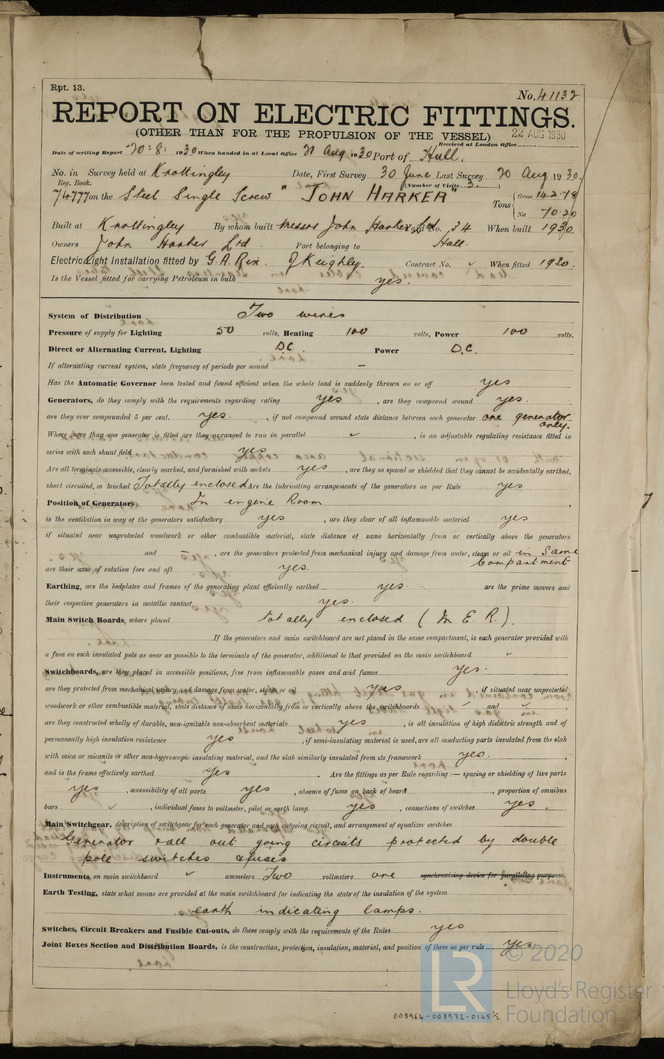 Rpt. 13.
No. 41132
REPORT ON ELECTRIC FITTINGS.
(OTHER THAN FOR THE PROPULSION OF THE VESSEL)
22 AUG 1930
Received at London Office
Date of writing Report 20·8· 1930 When handed in at Local Office 21 Aug 1930 Port of Hull.
No. in Survey held at Knottingley Date, First Survey 30 June Last Survey 20 Aug 1930.
Reg. Book. (Number of Visits 3.)
74777 on the Steel Single Screw "JOHN HARKER" Tons { Gross 142.78
Net 70.20
Built at Knottingley By whom built Messrs John Harker Ltd Yard No. 34 When built 1930
Owners John Harker Ltd. Port belonging to Hull.
Electric Light Installation fitted by G.A. Rix. Keighley. Contract No. When fitted 1930.
Is the Vessel fitted for carrying Petroleum in bulk yes.
System of Distribution Two wires
Pressure of supply for Lighting 50 volts, Heating 100 volts, Power 100 volts.
Direct or Alternating Current, Lighting DC Power D.C.
If alternating current system, state frequency of periods per second –
Has the Automatic Governor been tested and found efficient when the whole load is suddenly thrown on or off yes
Generators, do they comply with the requirements regarding rating yes, are they compound wound yes.
are they over compounded 5 per cent. yes., if not compound wound state distance between each generator one generator only.
Where more than one generator is fitted are they arranged to run in parallel ✓, is an adjustable regulating resistance fitted in
series with each shunt field yes
Are all terminals accessible, clearly marked, and furnished with sockets yes, are they so spaced or shielded that they cannot be accidentally earthed,
short circuited, or touched Totally enclosed Are the lubricating arrangements of the generators as per Rule yes
Position of Generators In engine Room
is the ventilation in way of the generators satisfactory yes, are they clear of all inflammable material yes
if situated near unprotected woodwork or other combustible material, state distance of same horizontally from or vertically above the generators
and , are the generators protected from mechanical injury and damage from water, steam or oil in same compartment
are their axes of rotation fore and aft yes.
Earthing, are the bedplates and frames of the generating plant efficiently earthed yes. are the prime movers and
their respective generators in metallic contact yes.
Main Switch Boards, where placed totally enclosed (In E.R.).
If the generators and main switchboard are not placed in the same compartment, is each generator provided with
a fuse on each insulated pole as near as possible to the terminals of the generator, additional to that provided on the main switchboard ✓
Switchboards, are they placed in accessible positions, free from inflammable gases and acid fumes yes.
are they protected from mechanical injury and damage from water, steam or oil yes, if situated near unprotected
woodwork or other combustible material, state distance of same horizontally from or vertically above the switchboards ✓ and ✓
are they constructed wholly of durable, non-ignitable non-absorbent materials yes, is all insulation of high dielectric strength and of
permanently high insulation resistance yes, if semi-insulating material is used, are all conducting parts insulated from the slab
with mica or micanite or other non-hygroscopic insulating material, and the slab similarly insulated from its framework yes.
and is the frame effectively earthed yes. Are the fittings as per Rule regarding:— spacing or shielding of live parts
yes, accessibility of all parts yes, absence of fuses on back of board , proportion of omnibus
bars ✓, individual fuses to voltmeter, pilot or earth lamp yes, connections of switches yes.
Main Switchgear, description of switchgear for each generator and each outgoing circuit, and arrangement of equalizer switches
Generator & all out going circuits protected by double
pole switches & fuses
Instruments, on main switchboard ✓ ammeters Two voltmeters one synchronising device for paralleling purposes.
Earth Testing, state what means are provided at the main switchboard for indicating the state of the insulation of the system
earth indicating lamps.
Switches, Circuit Breakers and Fusible Cut-outs, do these comply with the requirements of the Rules yes
Joint Boxes Section and Distribution Boards, is the construction, protection, insulation, material, and position of these as per rule yes.
© 2020
Lloyd's Register
Foundation
LR
008964-008972-0145½